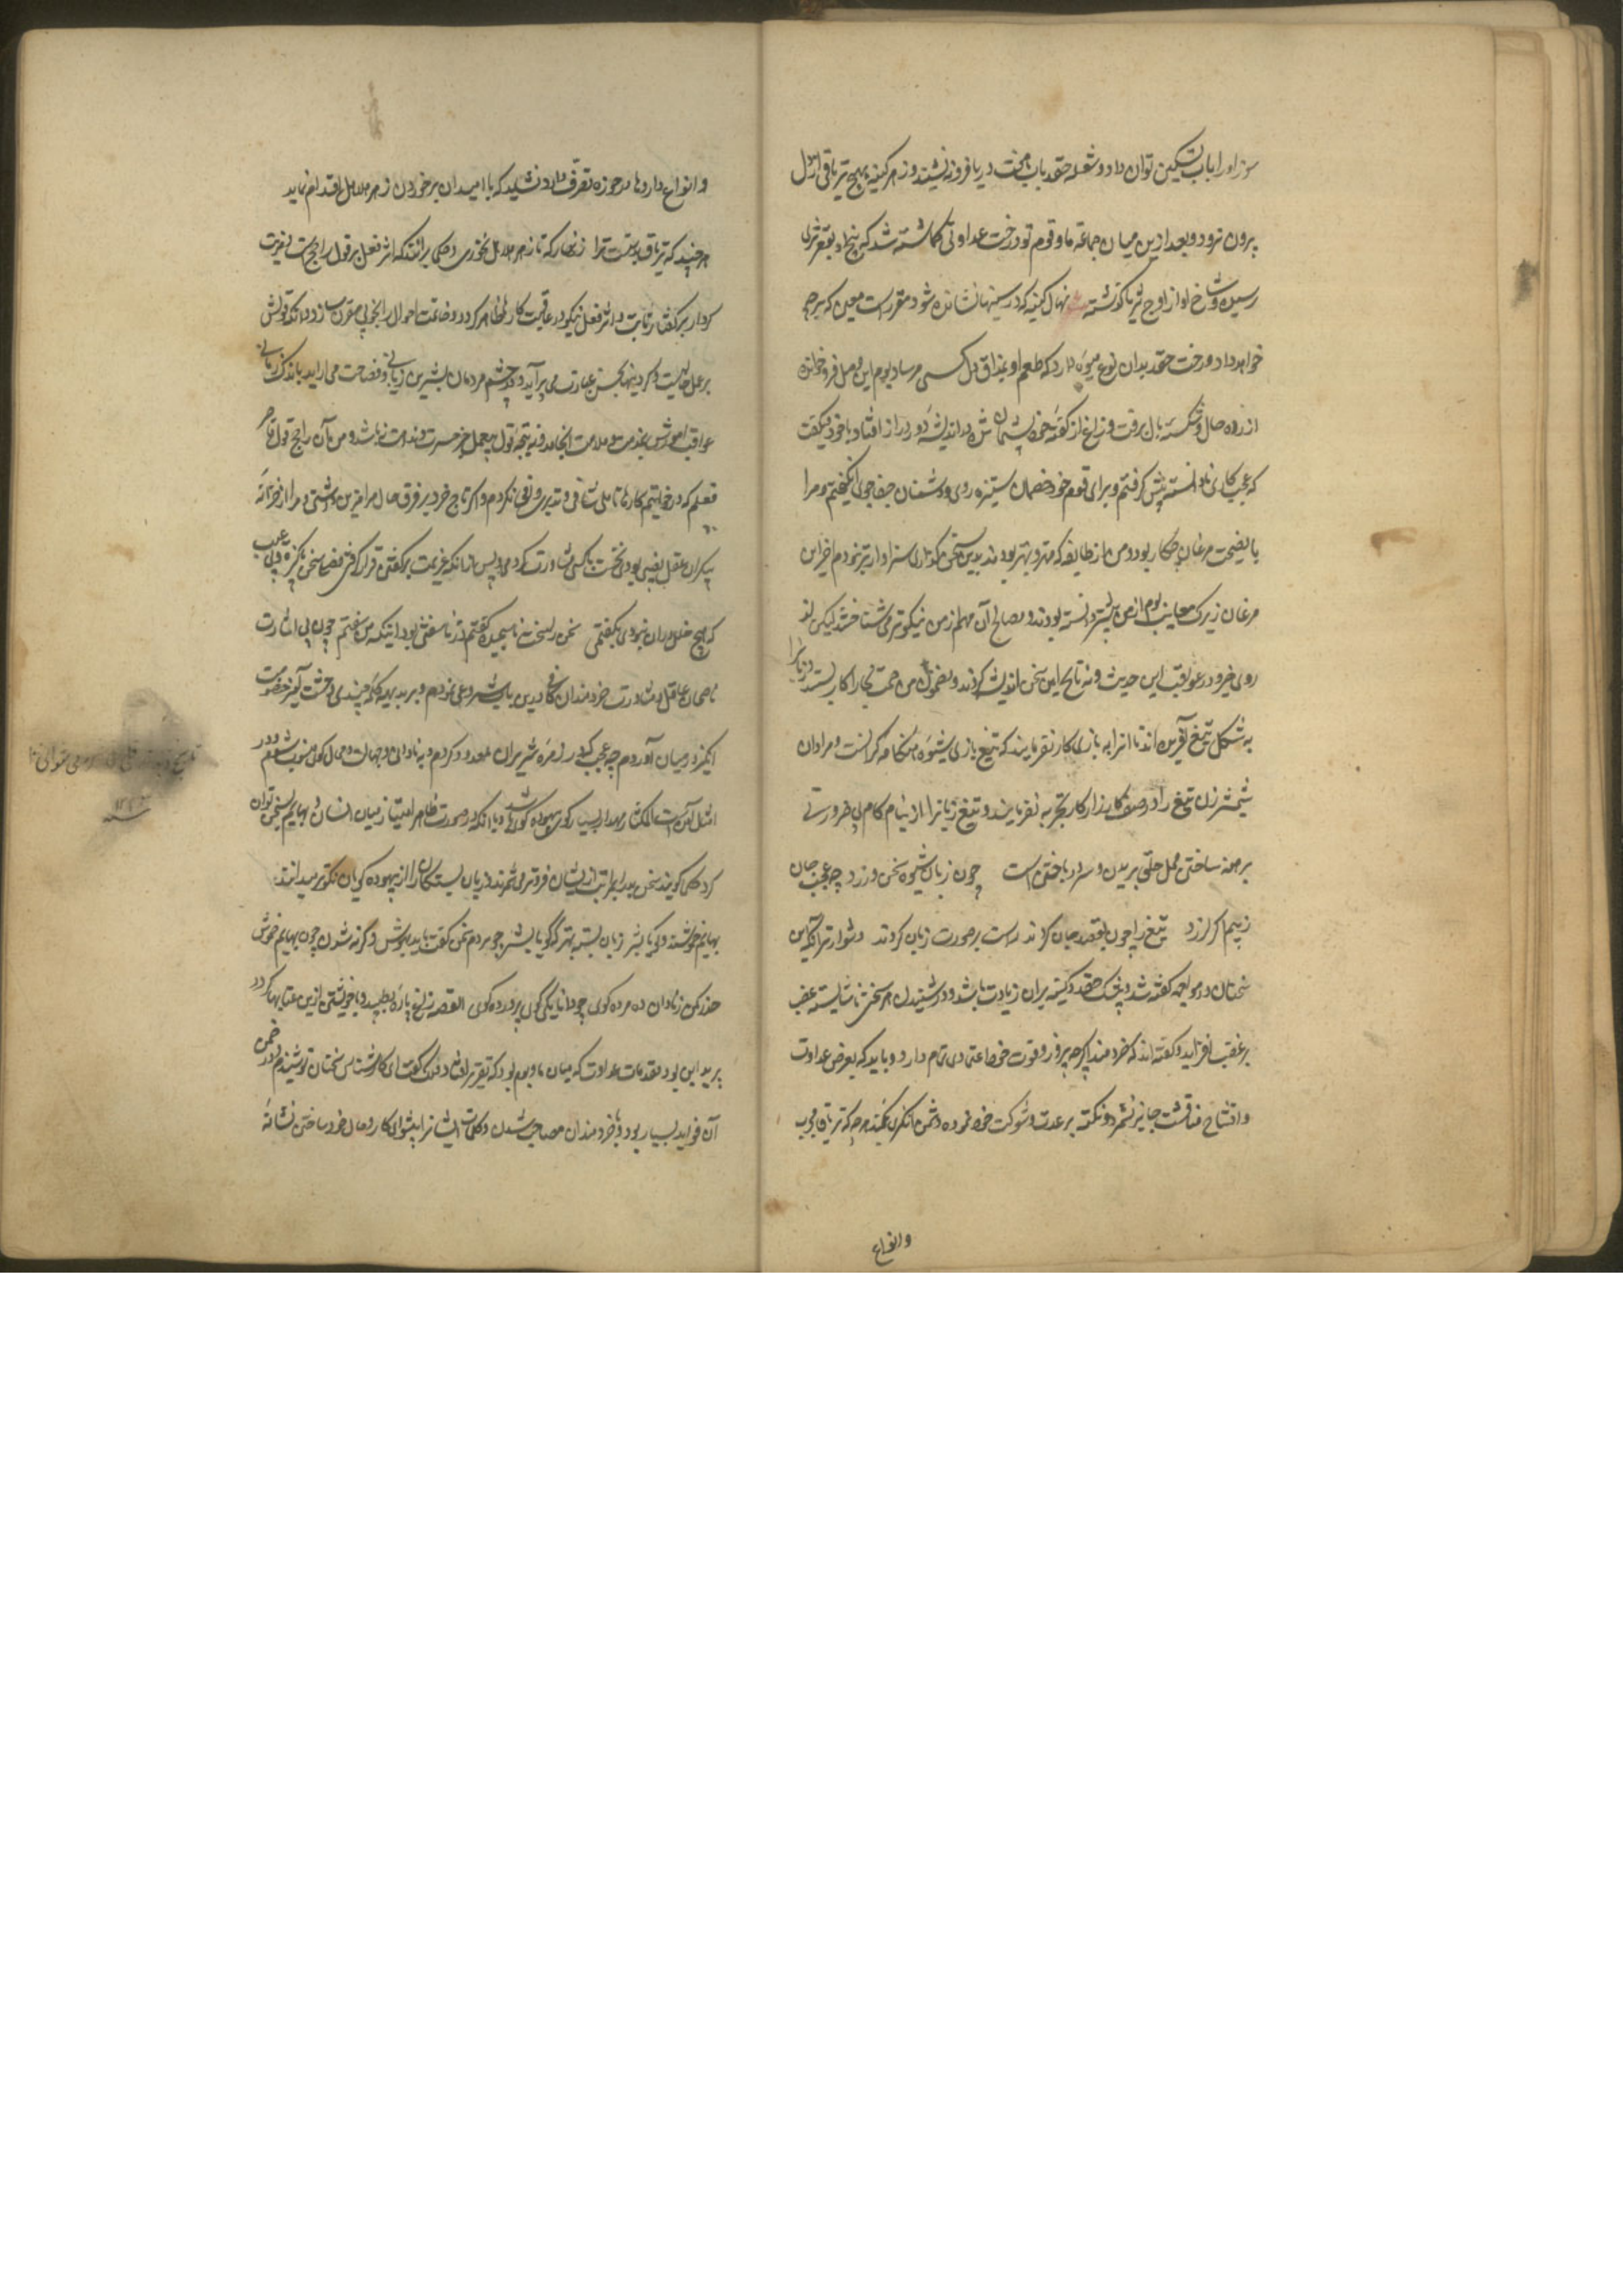 سوز او را باب تسکین توان داد و شعله حقد بآب هفت دریا فرو نه نشیند و زهر کینه بهیچ تریاقی از دل
بیرون نرود و بعد ازین میان جماعه ما و قوم تو درخت عداوتی کاشته شد که بیخ او بقعر ثری
رسیده و شاخ او از اوج ثریا گذشته نهال کینه که در سینها نشانده شود مقررست معین که بر چه
خواهد داد درخت حقد بدان نوع میوه دارد که طعم او بمذاق دل کسی مرساد بوم این فصل فرو خوانده
آزرده حال و شکسته بال برفت و زاغ از گفته خود پشیمان شده در اندیشه دور دراز افتاد با خود میگفت
که عجب کاری نادانسته پیش گرفتم و برای قوم خود خصمان ستیزه روی و دشمنان جفا جوی انگیختم و مرا
با نصیحت مرغان چکار بود و من از طایفه که مهتر و بهتر بودند بدین سخن گذاری سزاوارتر نبودم آخر این
مرغان زیرک معایب بوم از من بیشتر دانسته بودند و مصالح آن مهم از من نیکوتر می شناختند لیکن از
روی خرد در عواقب این حدیث و نتایج این سخن اندیشه کردند و بمضمون من صمت نجا را کار بستند زبانرا
به شکل تیغ آفریده اند تا انرا به بازی کار نفرمایند که تیغ بازی شیوه هنگامه گرانست و مردان
شمشیرزن تیغ را در صف کارزار کار بتجربه نفرمایند و تیغ زبانرا از نیام کام بی ضرورتی
برهنه ساختن محل حلق بریدن و سر در باختن است چون زبان شیوه سخن ورزد چه عجب جان
ز بیم اگر لرزد تیغ را چون بقصد جان کردند راست بر صورت زبان کردند دشوارتر آنکه این
سخنان در مواجهه گفته شد و بیشک حقد و کینه بران زیادت باشد و در شنیدن هر سخن ناشایسته غضب
بر غضب افزاید و گفته اند که خردمند اگرچه بزور و قوت خود اعتمادی تمام دارد و باید که بعرض عداوت
و افتتاح مناقشت جایز نشمرد و تکیه بر عدت و شوکت خود نموده دشمن انگیزی نکند هر چه که تریاق مجرب
وانواع
و انواع داروها در حوزه تصرف دارد نشاید که با امید ان بر خوردن زهر هلاهل اقدام نماید
هر چند که تریاق بدست ترا زنهار که تا زهر هلاهل نخوری و حکما برانند که اثر فعل بر قول راجح است بمزیت
کردار بر گفتار ثابت و اثر فعل نیکو در عاقبت کارها ظاهر گردد و خاتمت احوال را بخوبی مقرون سازد و انکه قولش
بر عمل غالبست و کردنیها بحسن عبارت می آراید و در چشم مردمان بشیرین زبانی و فصاحت می آراید باندک زمانی
عواقب امورش بمذمت و ملامت انجامد و نتیجه قول بی عمل جز حسرت و ندامت نباشد و من آن راجح قول قاصر
فعلم که در خواتیم کارها تاملی شافی و تدبیری وافی نکردم و اگر تاج خرد بر فرق حال من مزین داشتی و مرا از خزانه
بیکران عقل نصیبی بودی نخست با کسی مشاورت کردمی و پس از انکه عزیمت بر گفتن قرار گرفتی فصلی سخن پاکیزه و بی عیب
که هیچ خلل دران نبودی بگفتمی سخن را سخت ناسنجیده گفتم در ناسفتنی بود اینکه من سفتم چون بی اشارت
ناصحان عاقل و مشاورت خردمندان کافی درین باب شروع نمودم و بر بدیهه کلمه چندی وحشت آمیز خصومت
انگیز در میان آوردم چه عجب که در زمره شریران معدود گردم و بنادانی و جهالت و حال گوئی منسوب شوم و در
امثال آمدست المکثار مهذار بسیار گوی بیهوده گوی باشد و با انکه در صورت ظاهر امتیاز میان انسان و بهایم بسخن توان
کرد حکما گویند سخن بیهوده را بمراتب ازیشان فروتر می شمرند و زبان بستگان را از بیهوده گویان نیکوتر میدانند
بهایم خموشند و گویا بشر زبان بسته بهتر که گویا بشر چو مردم سخن گفت باید بهوش و گرنه شدن چون بهایم خموش
حذر کن ز نادان ده مرده گوی چو دانا یکی گوی پرورده گوی القصه زاغ پاره بطپید و با خویشتن ازین عتابها کرد و
بپرید این بود مقدمات عداوت که میان ما و بوم بود که تقریر افتاد ملک گفت ای کارشناس سخنان تو شنیدم و در ضمن
آن فواید بسیار بود و با خردمندان مصاحب شدن و کلمات ایشانرا پیشوای کار و حال خود ساختن نشانه